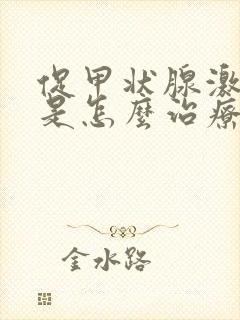 促甲状腺激
是怎麼治療
金水路